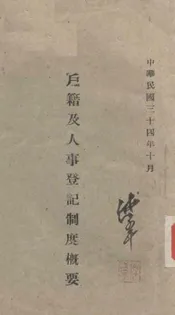 中華民國三十四年十月
戶籍及人事登記制度概要